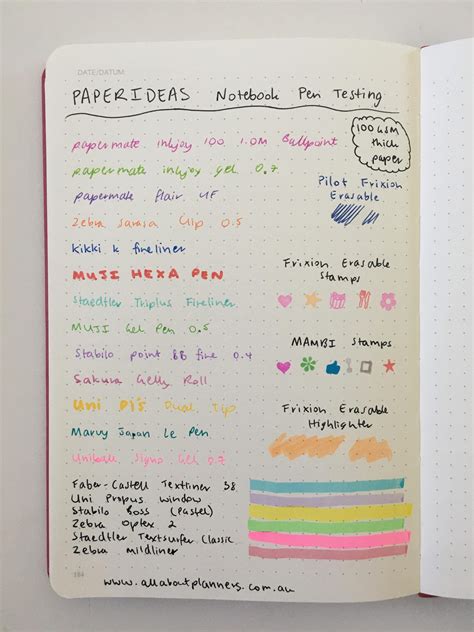 DATE/DATUM
PAPERIDEAS Notebook Pen Testing
100 GSM
thick
paper
papermate inkjoy 100 1.0M Ballpoint
papermate inkjoy gel 0.7
papermate flair UF
Zebra Sarasa Clip 0.5
kikki k fineliner
MUJI HEXA PEN
Staedtler Triplus Fineliner
MUJI Gel Pen 0.5
Stabilo point 88 fine 0.4
Sakura Gelly Roll
Uni Pi's Dual Tip
Marvy Japan Le Pen
Uniball Signo Gel 0.7
Pilot Frixion
Erasable
Frixion Erasable
Stamps
MAMBI Stamps
Frixion Erasable
Highlighter
Faber-Castell Textliner 38
Uni Propus window
Stabilo Boss (Pastel)
Zebra Optex 2
Staedtler Textsurfer Classic
Zebra mildliner
www.allaboutplanners.com.au